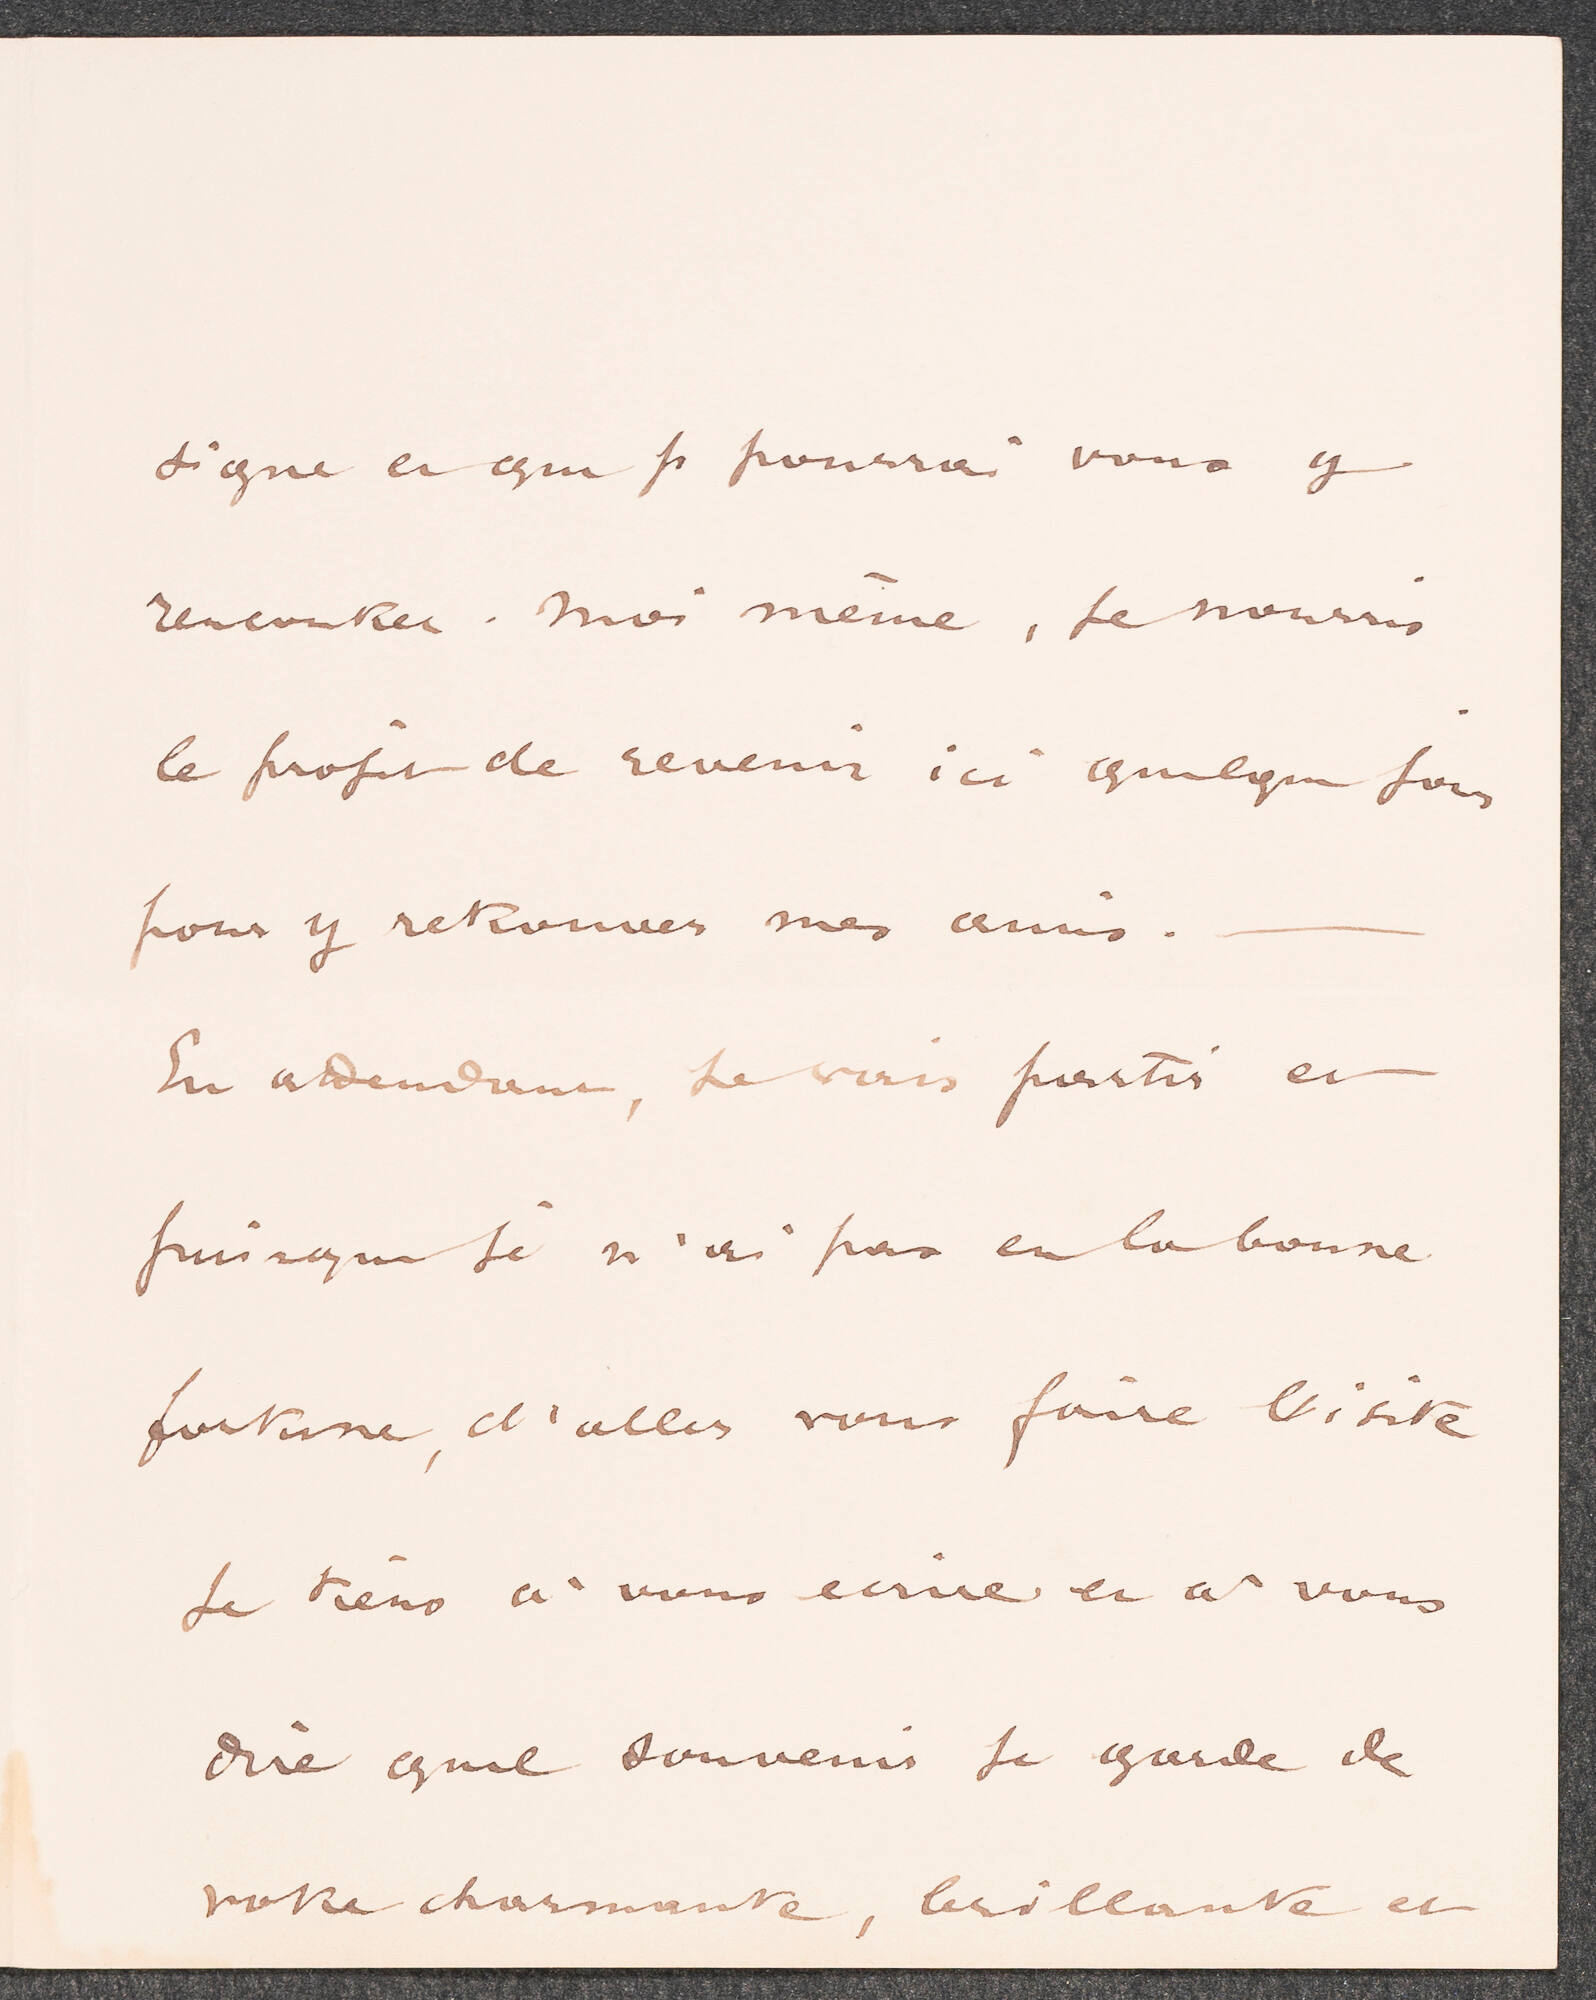 signe et que je pourrai vous y
rencontrer. Moi même, je nourris
le projet de revenir ici quelque jour
pour y retrouver mes amis. —
En attendant, je vais partir et
puisque je n'ai pas eu la bonne
fortune, d'aller vous faire visite
je tiens à vous écrire et à vous
dire quel souvenir je garde de
votre charmante, brillante et